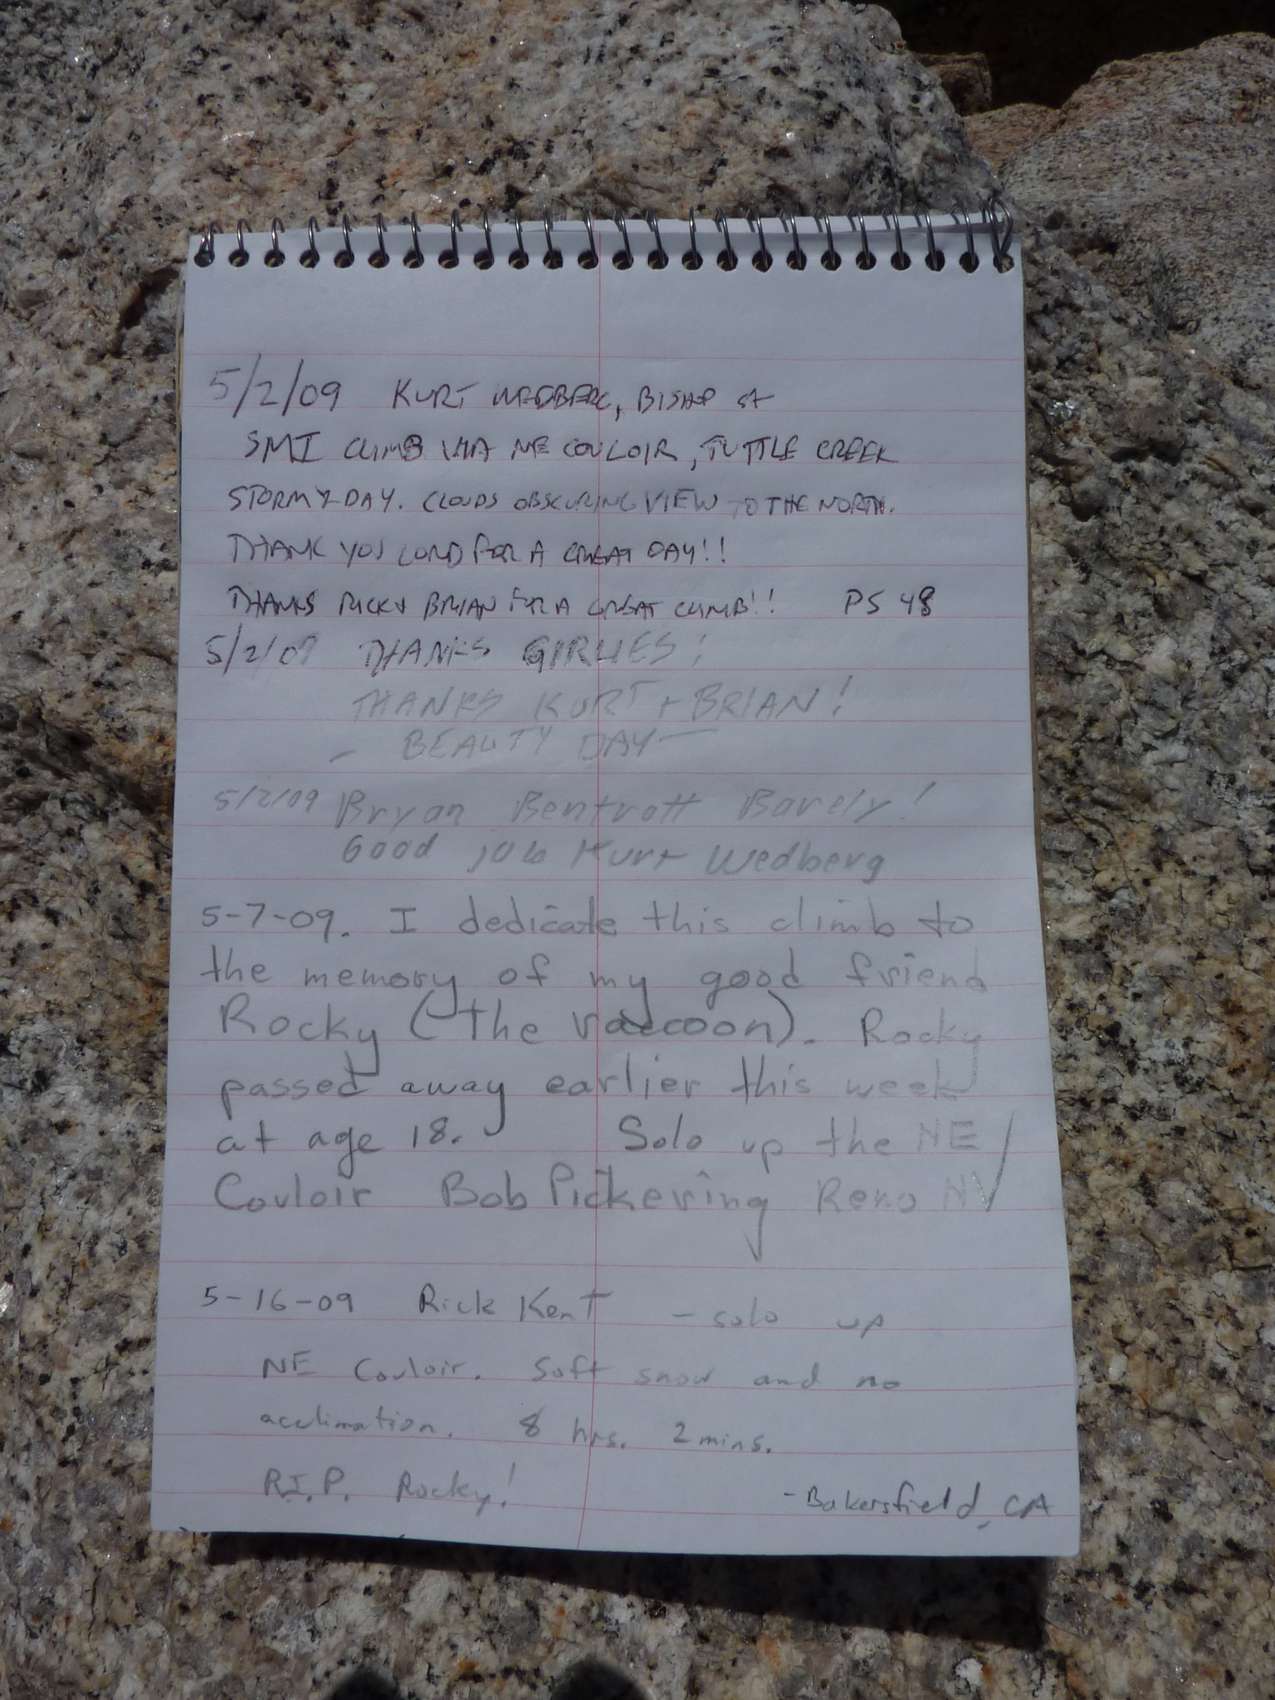 5/2/09 KURT WEDBERG, BISHOP CA
SMI CLIMB VIA NE COULOIR, TUTTLE CREEK
STORMY DAY. CLOUDS OBSCURING VIEW TO THE NORTH.
THANK YOU LORD FOR A GREAT DAY!!
THANKS RICK & BRIAN FOR A GREAT CLIMB!! PS 48
5/2/09 THANKS GIRLIES!
THANKS KURT + BRIAN!
- BEAUTY DAY -
5/2/09 Bryan Bentrott Barely!
Good job Kurt Wedberg
5-7-09. I dedicate this climb to
the memory of my good friend
Rocky (the raccoon). Rocky
passed away earlier this week
at age 18. Solo up the NE
Couloir Bob Pickering Reno NV
5-16-09 Rick Kent - solo up
NE Couloir. Soft snow and no
acclimation. 8 hrs. 2 mins.
R.I.P. Rocky! - Bakersfield, CA